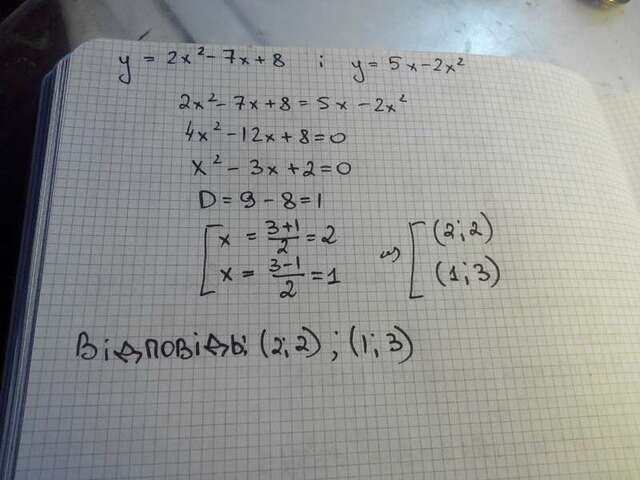 y = 2x² - 7x + 8 i y = 5x - 2x²
2x² - 7x + 8 = 5x - 2x²
4x² - 12x + 8 = 0
x² - 3x + 2 = 0
D = 9 - 8 = 1
[ x = (3+1)/2 = 2 ⇒ [ (2; 2)
x = (3-1)/2 = 1 (1; 3)
Відповідь: (2; 2) ; (1; 3)